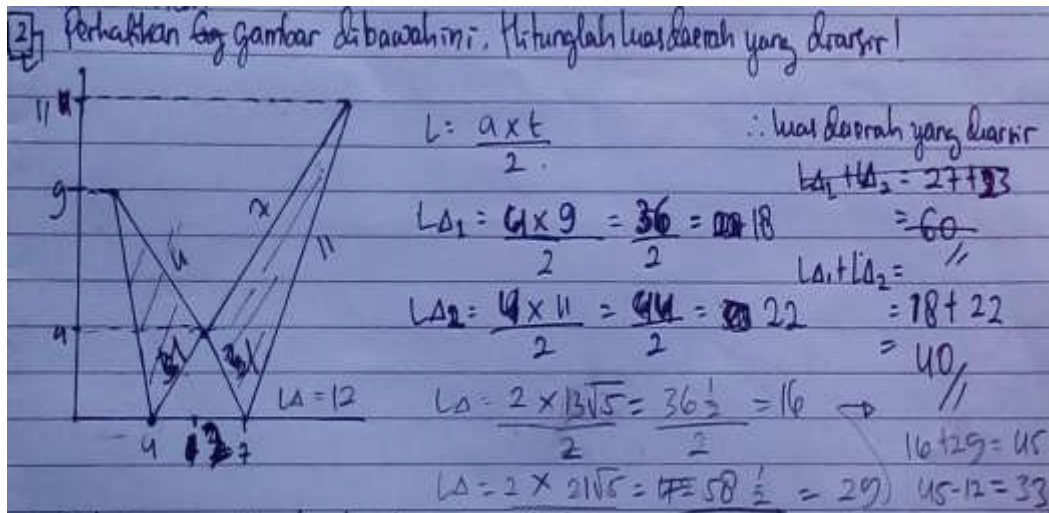 2) Perhatikan gambar dibawah ini. Hitunglah luas daerah yang diarsir!
11
9
4
4
7
x
4
11
LΔ = 12
L = a x t / 2
LΔ1 = 4 x 9 / 2 = 36 / 2 = 18
LΔ2 = 4 x 11 / 2 = 44 / 2 = 22
LΔ = 2 x 13√5 / 2 = 36 1/2 / 2 = 16
LΔ = 2 x 21√5 = 58 1/2 = 29
∴ luas daerah yang diarsir
LΔ1 + LΔ2 = 27 + 33
= 60 //
LΔ1 + LΔ2 =
= 18 + 22
= 40 //
16 + 29 = 45
45 - 12 = 33